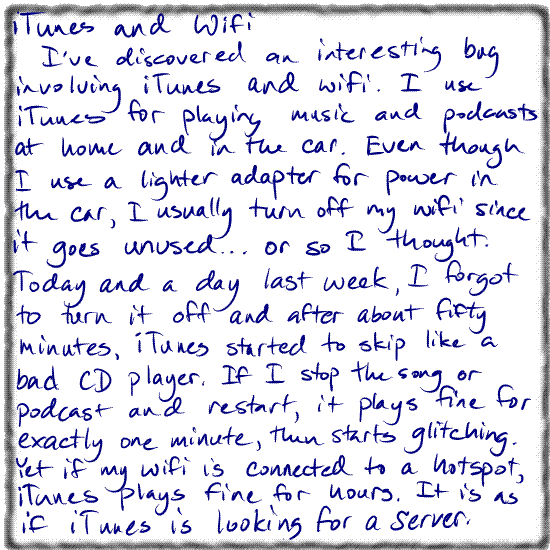 iTunes and Wifi
I've discovered an interesting bug
involving iTunes and wifi. I use
iTunes for playing music and podcasts
at home and in the car. Even though
I use a lighter adapter for power in
the car, I usually turn off my wifi since
it goes unused... or so I thought.
Today and a day last week, I forgot
to turn it off and after about fifty
minutes, iTunes started to skip like a
bad CD player. If I stop the song or
podcast and restart, it plays fine for
exactly one minute, then starts glitching.
Yet if my wifi is connected to a hotspot,
iTunes plays fine for hours. It is as
if iTunes is looking for a server.